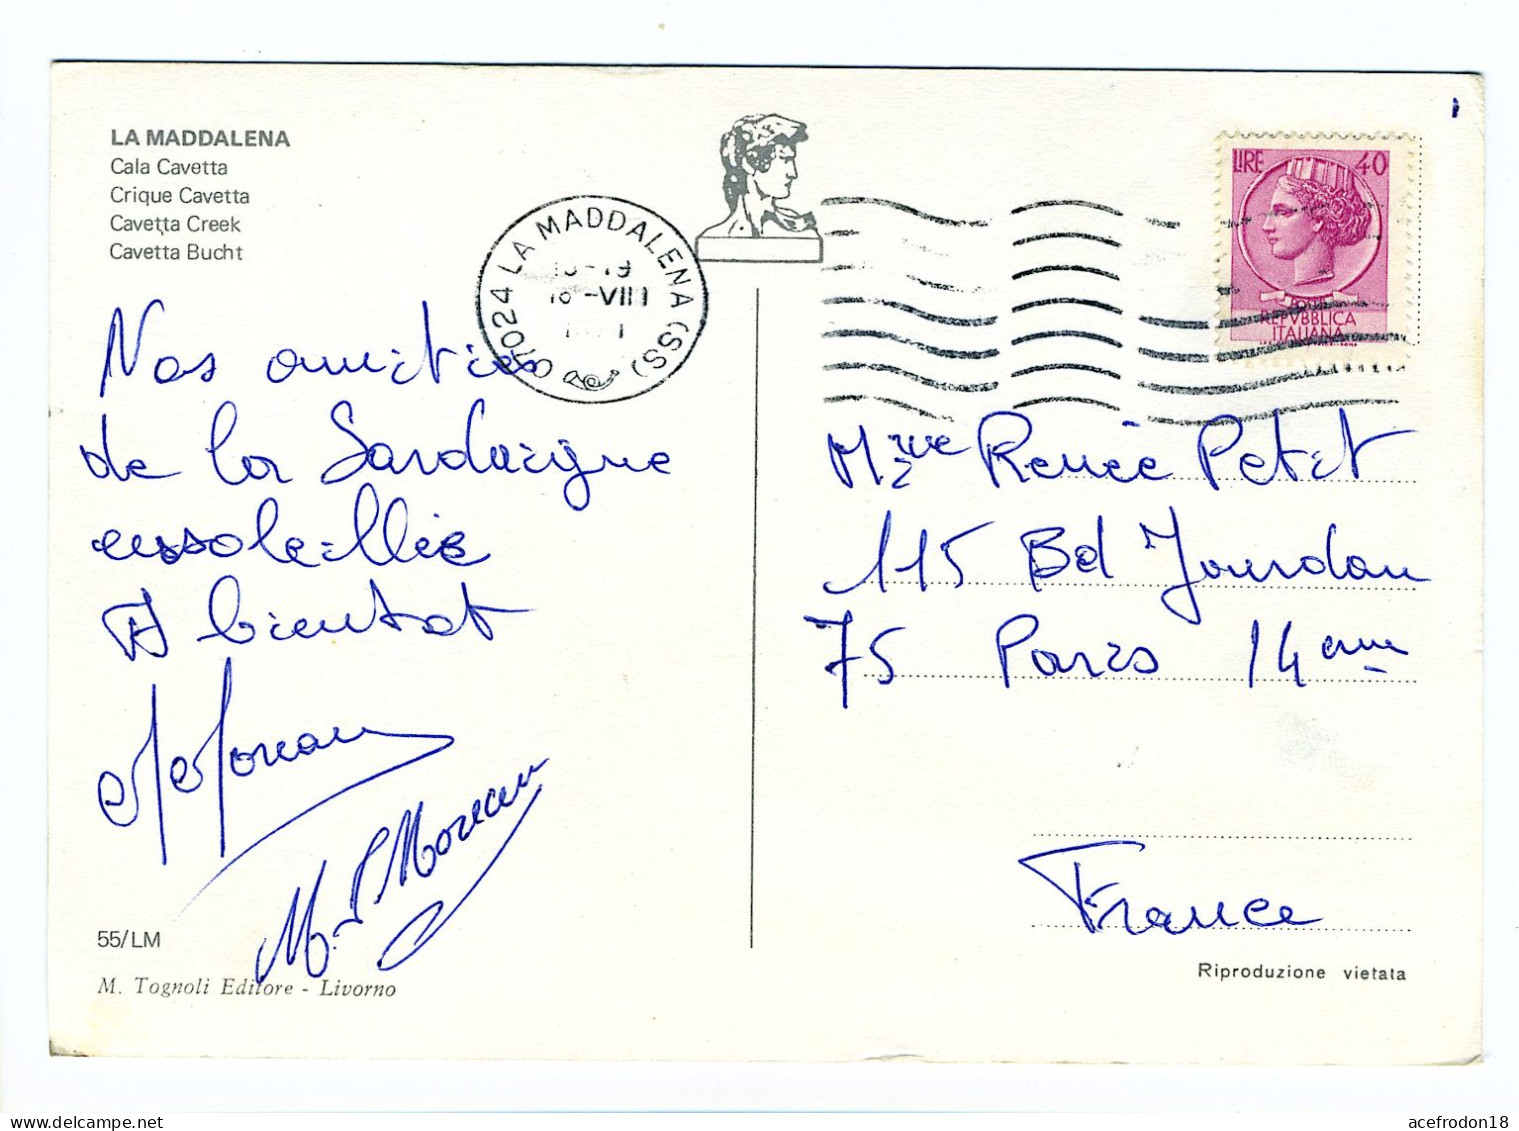 LA MADDALENA
Cala Cavetta
Crique Cavetta
Cavetta Creek
Cavetta Bucht
07024 LA MADDALENA (SS)
-19
18 -VIII
LIRE 40
REPVBBLICA
ITALIANA
Nos amitiés
de la Sardaigne
ensoleillée
A bientot
Moreau
M. Moreau
Mme Renée Petit
115 Bd Jourdan
75 Paris 14 eme
France
55/LM
M. Tognoli Editore - Livorno
Riproduzione vietata
acefrodon18